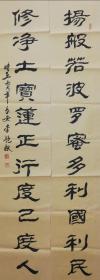 揚般若波罗蜜多利國利民
修净土寶蓮正行度己度人